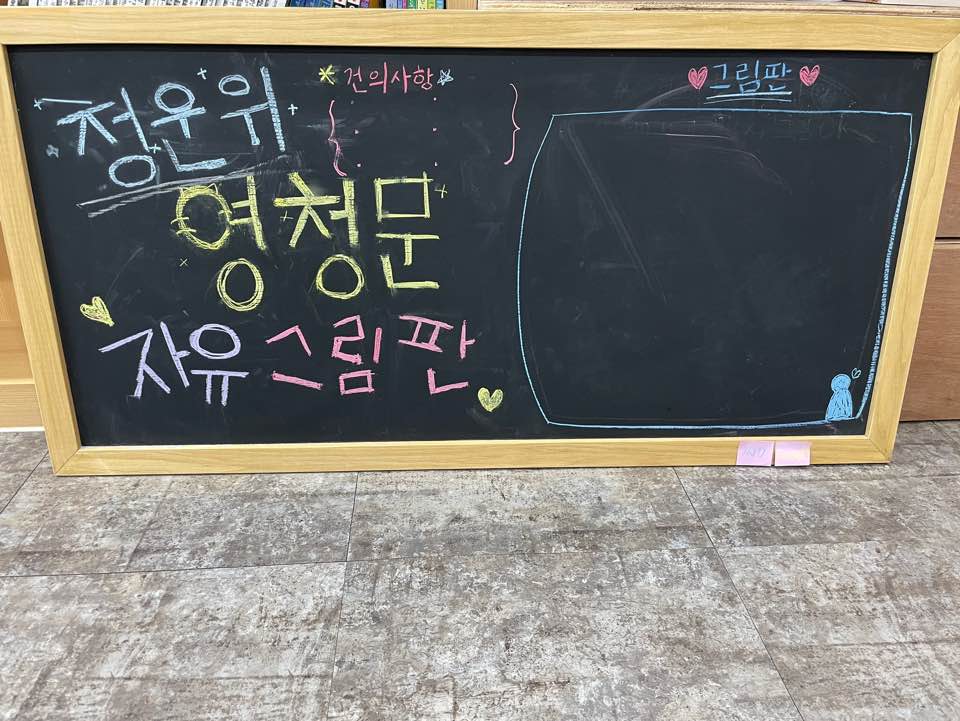 정운위
영청문
자유그림판
건의사항
그림판